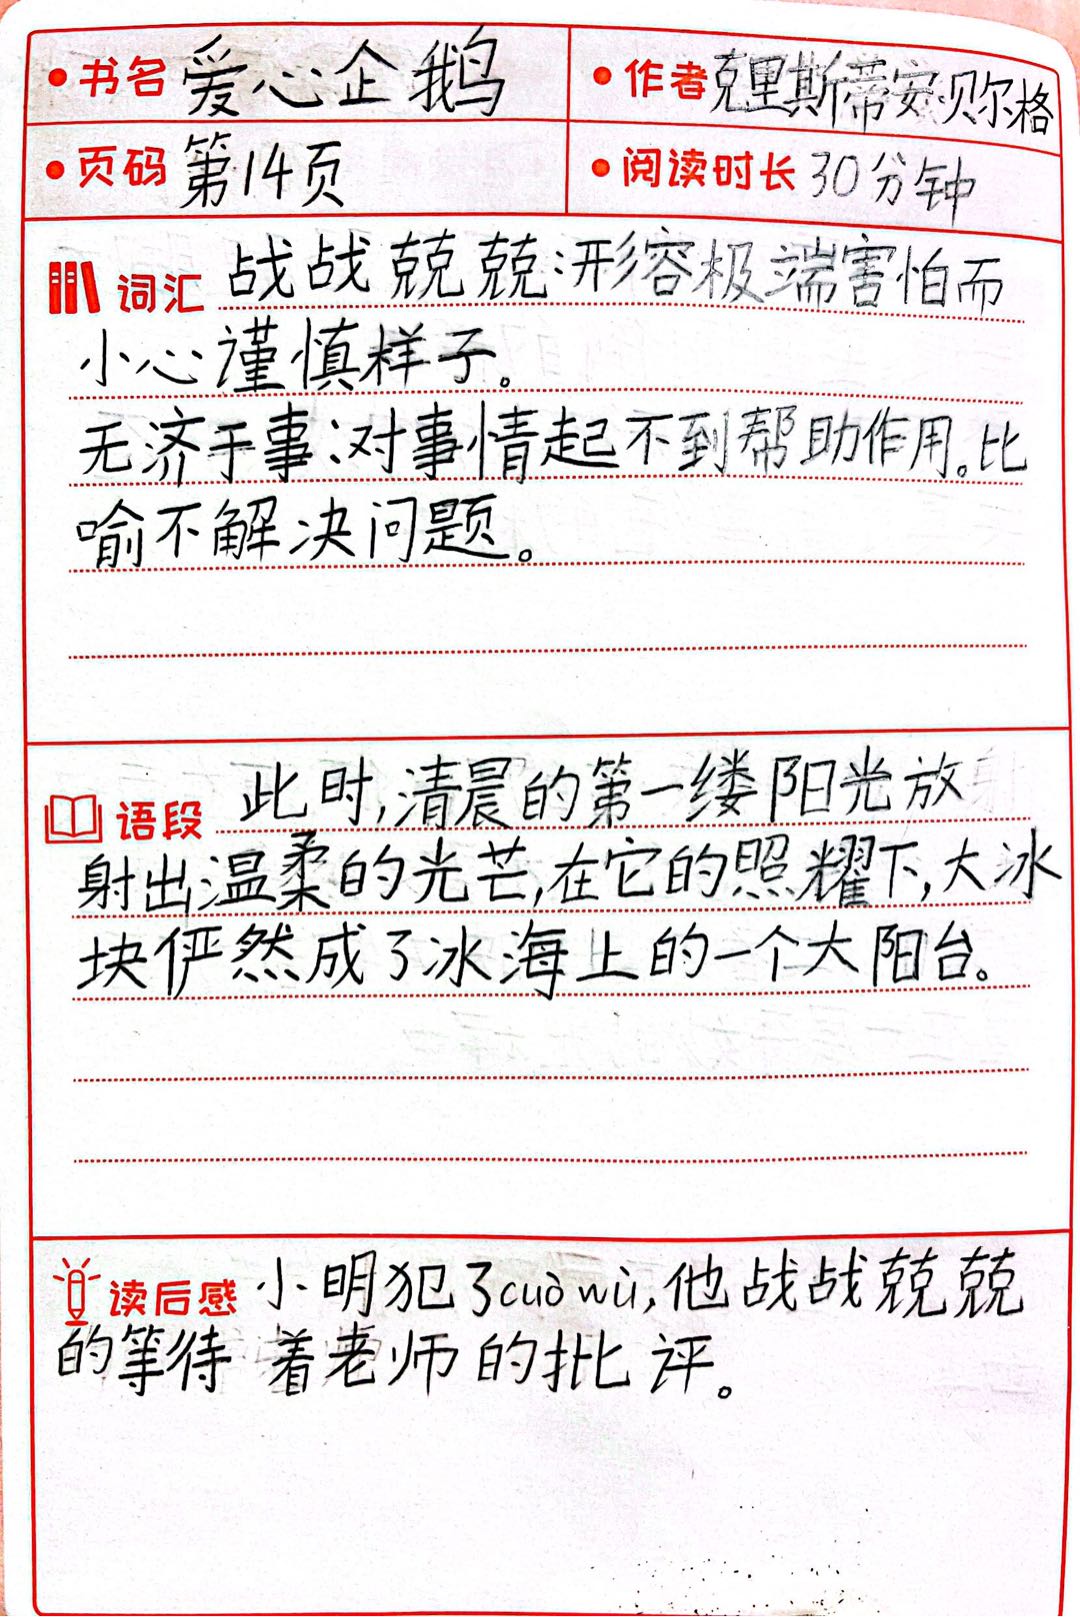 书名 爱心企鹅 作者 克里斯蒂安·贝尔格
页码 第14页 阅读时长 30分钟
词汇 战战兢兢:形容极端害怕而
小心谨慎样子。
无济于事:对事情起不到帮助作用。比
喻不解决问题。
语段 此时,清晨的第一缕阳光放
射出温柔的光芒,在它的照耀下,大冰
块俨然成了冰海上的一个大阳台。
读后感 小明犯了cuò wù,他战战兢兢
的等待着老师的批评。